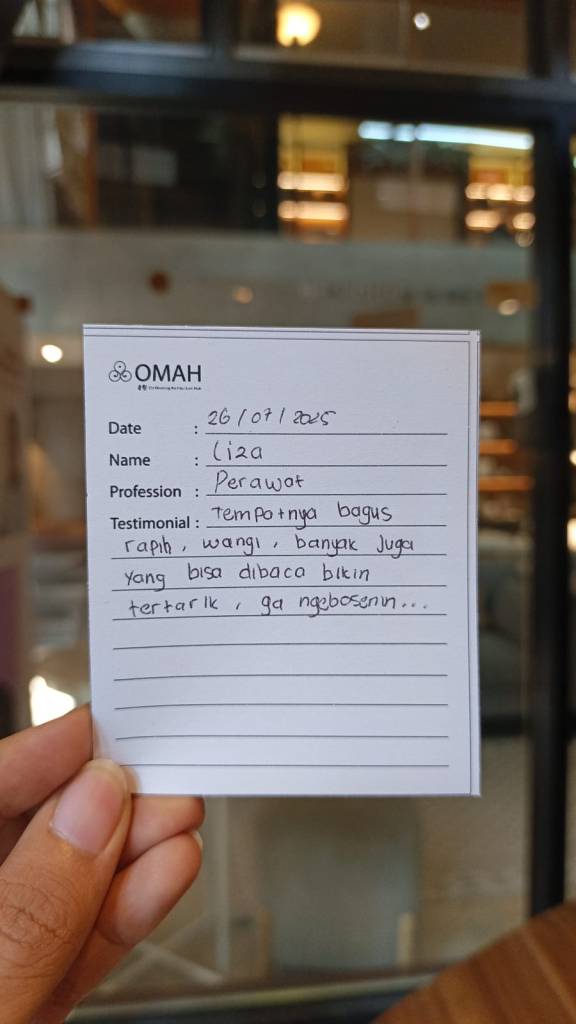 OMAH
Date : 26 / 07 / 2025
Name : Liza
Profession : Perawat
Testimonial : Tempatnya bagus
rapih, wangi, banyak Juga
yang bisa dibaca bikin
tertarik, ga ngebosenin...